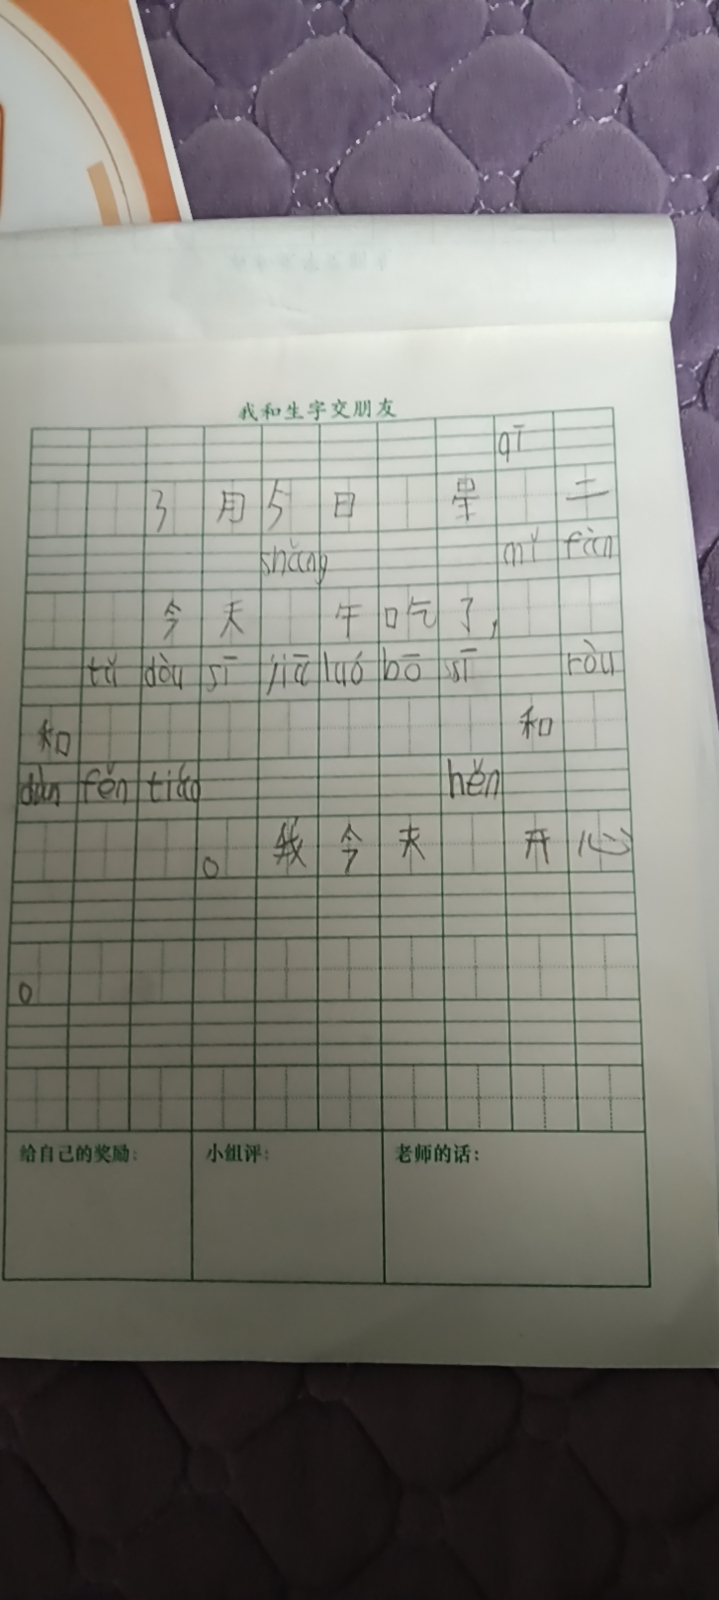 我和生字交朋友
qī
3月5日 星 二
shàng mǐ fàn
今天 午吃了，
tǔ dòu sī jiā luó bō sī ròu
和 和
dùn fěn tiáo hěn
。我今天 开心
。
给自己的奖励： 小组评： 老师的话：